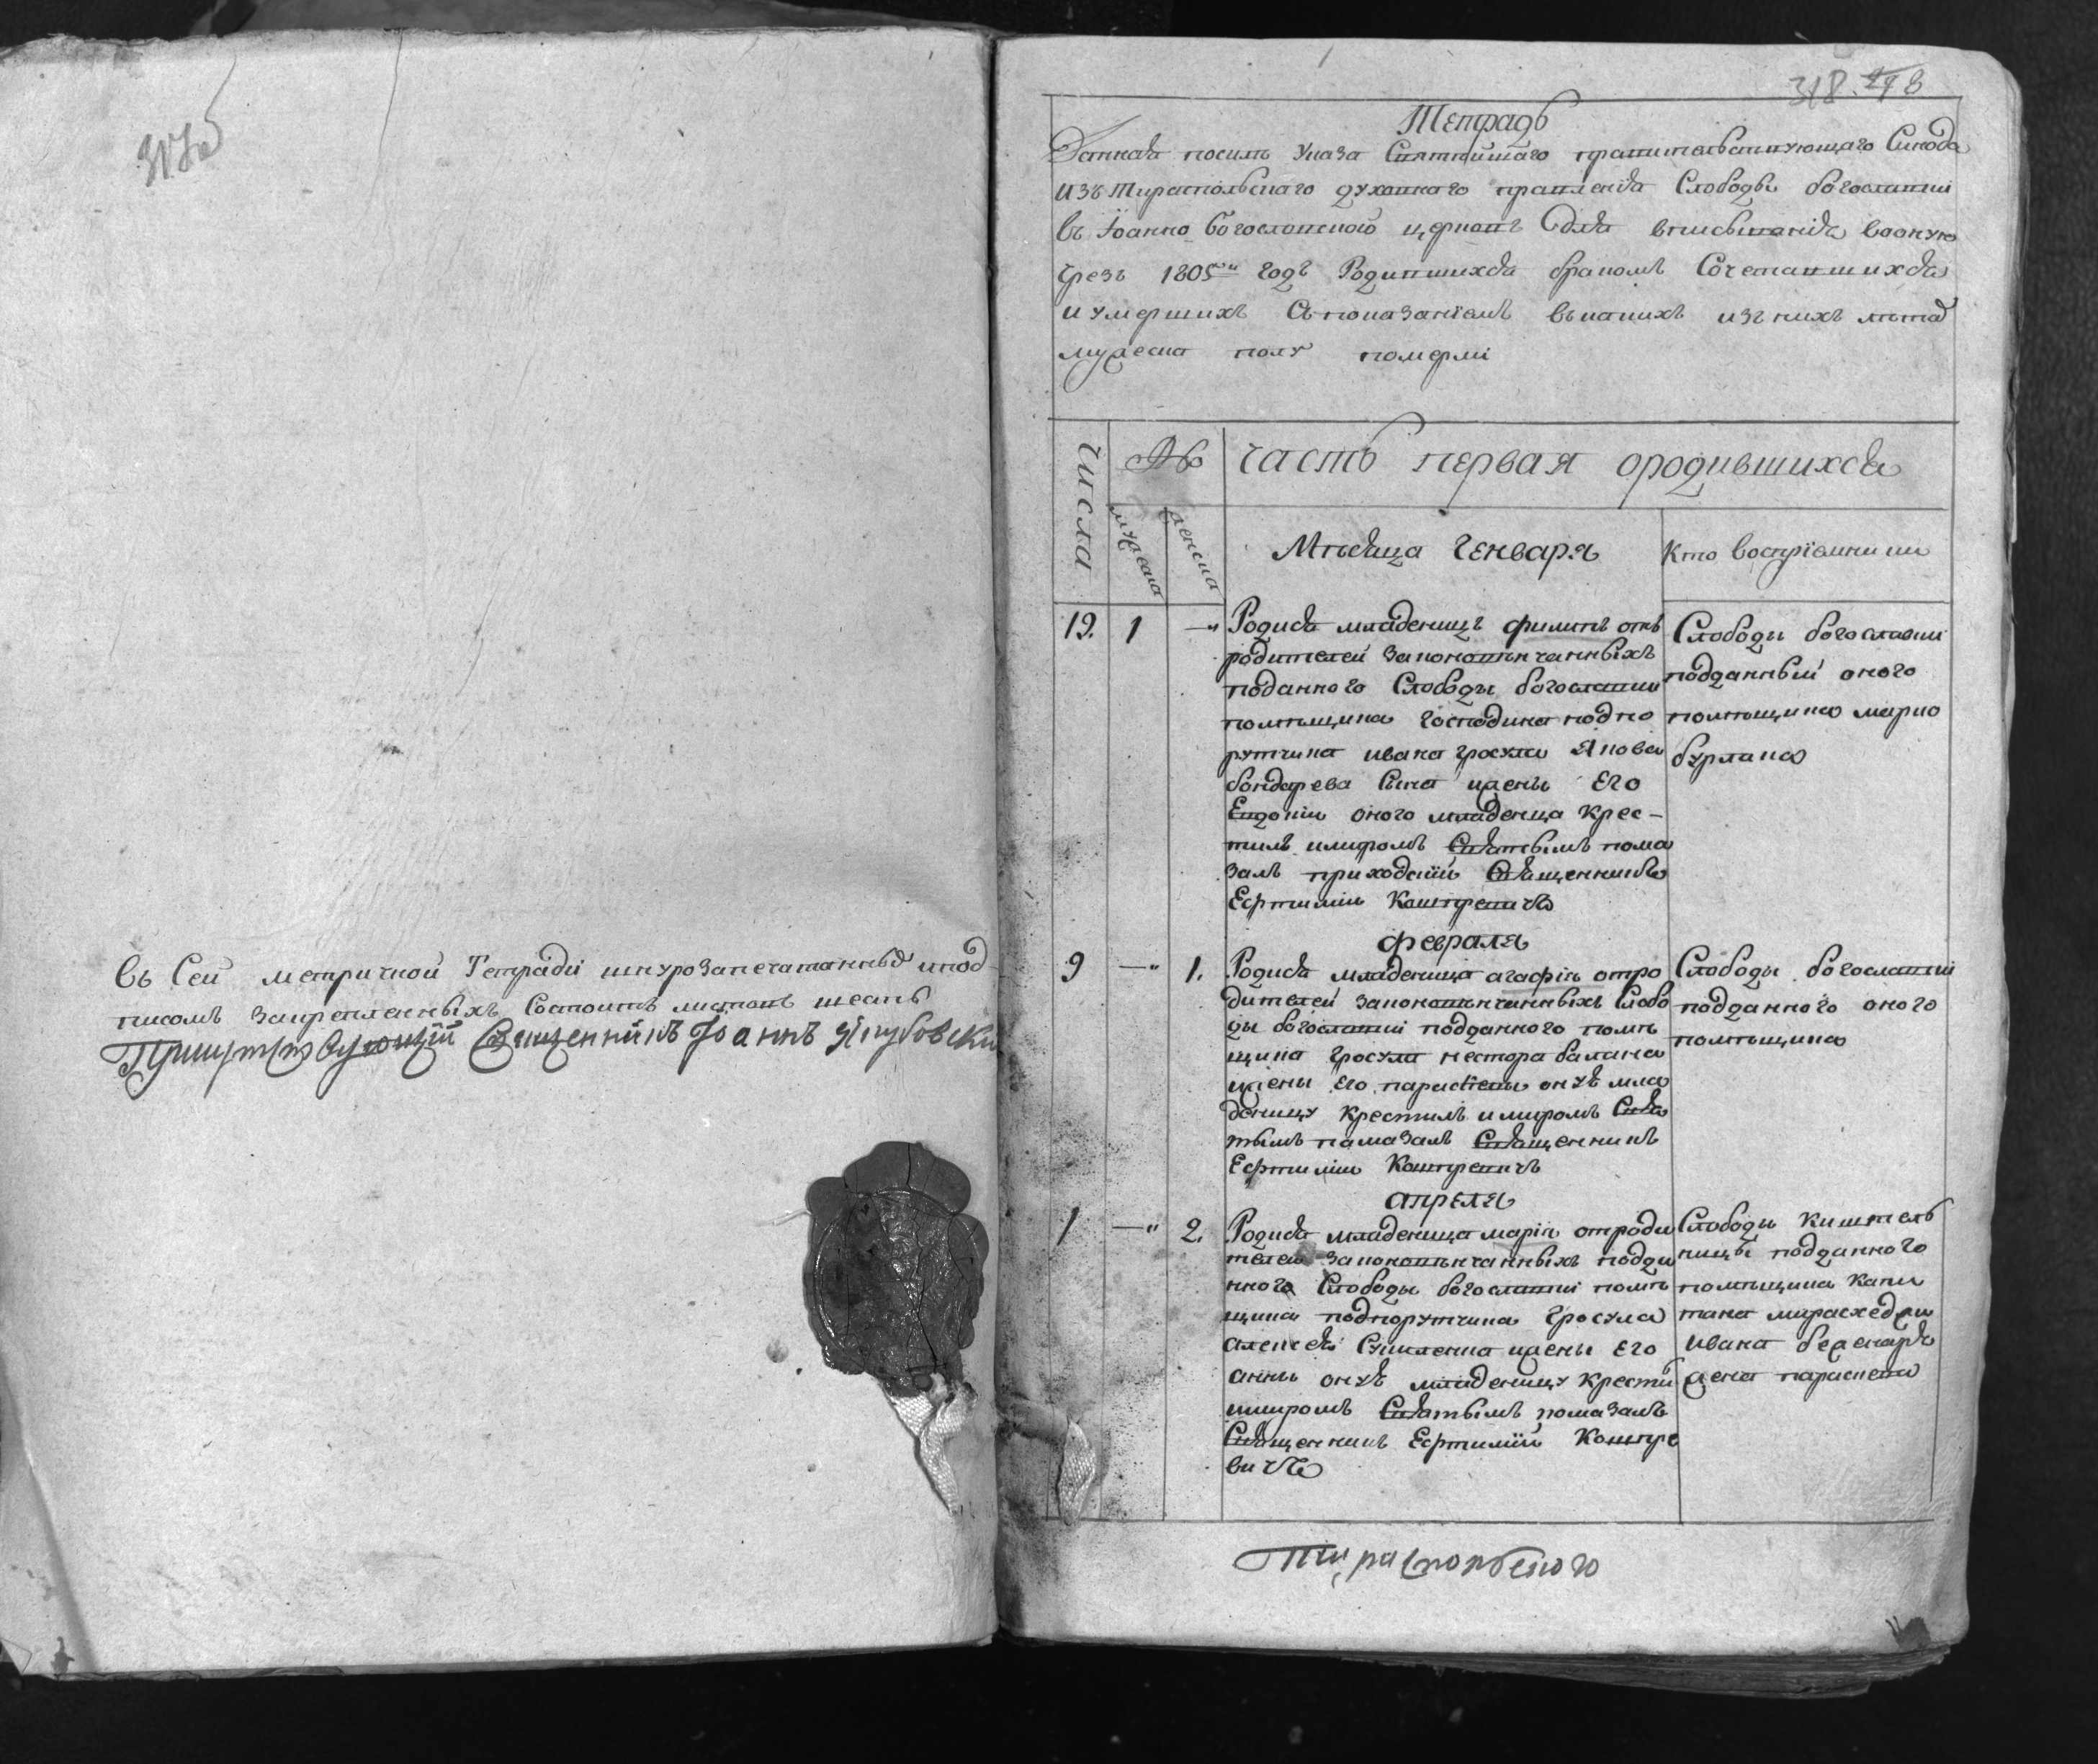 въ Сей метричной Тетради шнурозапечатанныя ипод
писомъ закрепленныхъ Состоитъ листовъ шесть
Присутствующій Священникъ Іоаннъ Якубовски
318.
Тетрадь
Данная посилѣ Указа Святѣйшаго правительствующаго Синода
изъ тираспольскаго духовнаго правленія Слободы богославки
въ Іоанно богословскою церковь Для вписыванія вооную
чрезъ 1805 годъ Родившихся бракомъ Сочетавшихся
и умершихъ Спомазаніемъ
мужеска полу померли
числа
№
мужеска
женска
часть первая ородившихся
Мѣсяца Генваря
Кто воспріемники
19. 1 —„
Родися младенецъ филипъ отъ
родителей законовѣнчанныхъ
поданного Слободы богославки
помѣщика господина подпо
рутчика ивана гросула Якова
бондарева Сына жены Его
Евдокіи оного младенца крес-
тилъ имиромъ Святымъ пома
залъ приходскій Священникъ
Ефтимій Каштревичъ
Слободы богославки
подданный оного
помѣщика марко
бурлака
февраля
9 —„ 1.
Родися младеница агафія отро
дителей законовѣнчанныхъ Слобо
ды богославки подданного помѣ
щика гросула нестора балана
жены его параскевы онуъ мла
деницу крестилъ имиромъ Свя
тымъ памазалъ Священникъ
Ефтимій Каштревичъ
Слободы богославки
подданного оного
помѣщика
апреля
1 —„ 2.
Родися младеница марія отроди
телей законовѣнчанныхъ подда
нного Слободы богославки помѣ
щика подпорутчика гросула
алексея жены Его
анны онуъ младеницу крести
имиромъ Святымъ помазалъ
Священникъ Ефтимій Каштре
вичъ
Слободы киштель
ницы подданного
помѣщика капи
тана
ивана
жена параскева
Тираспольского